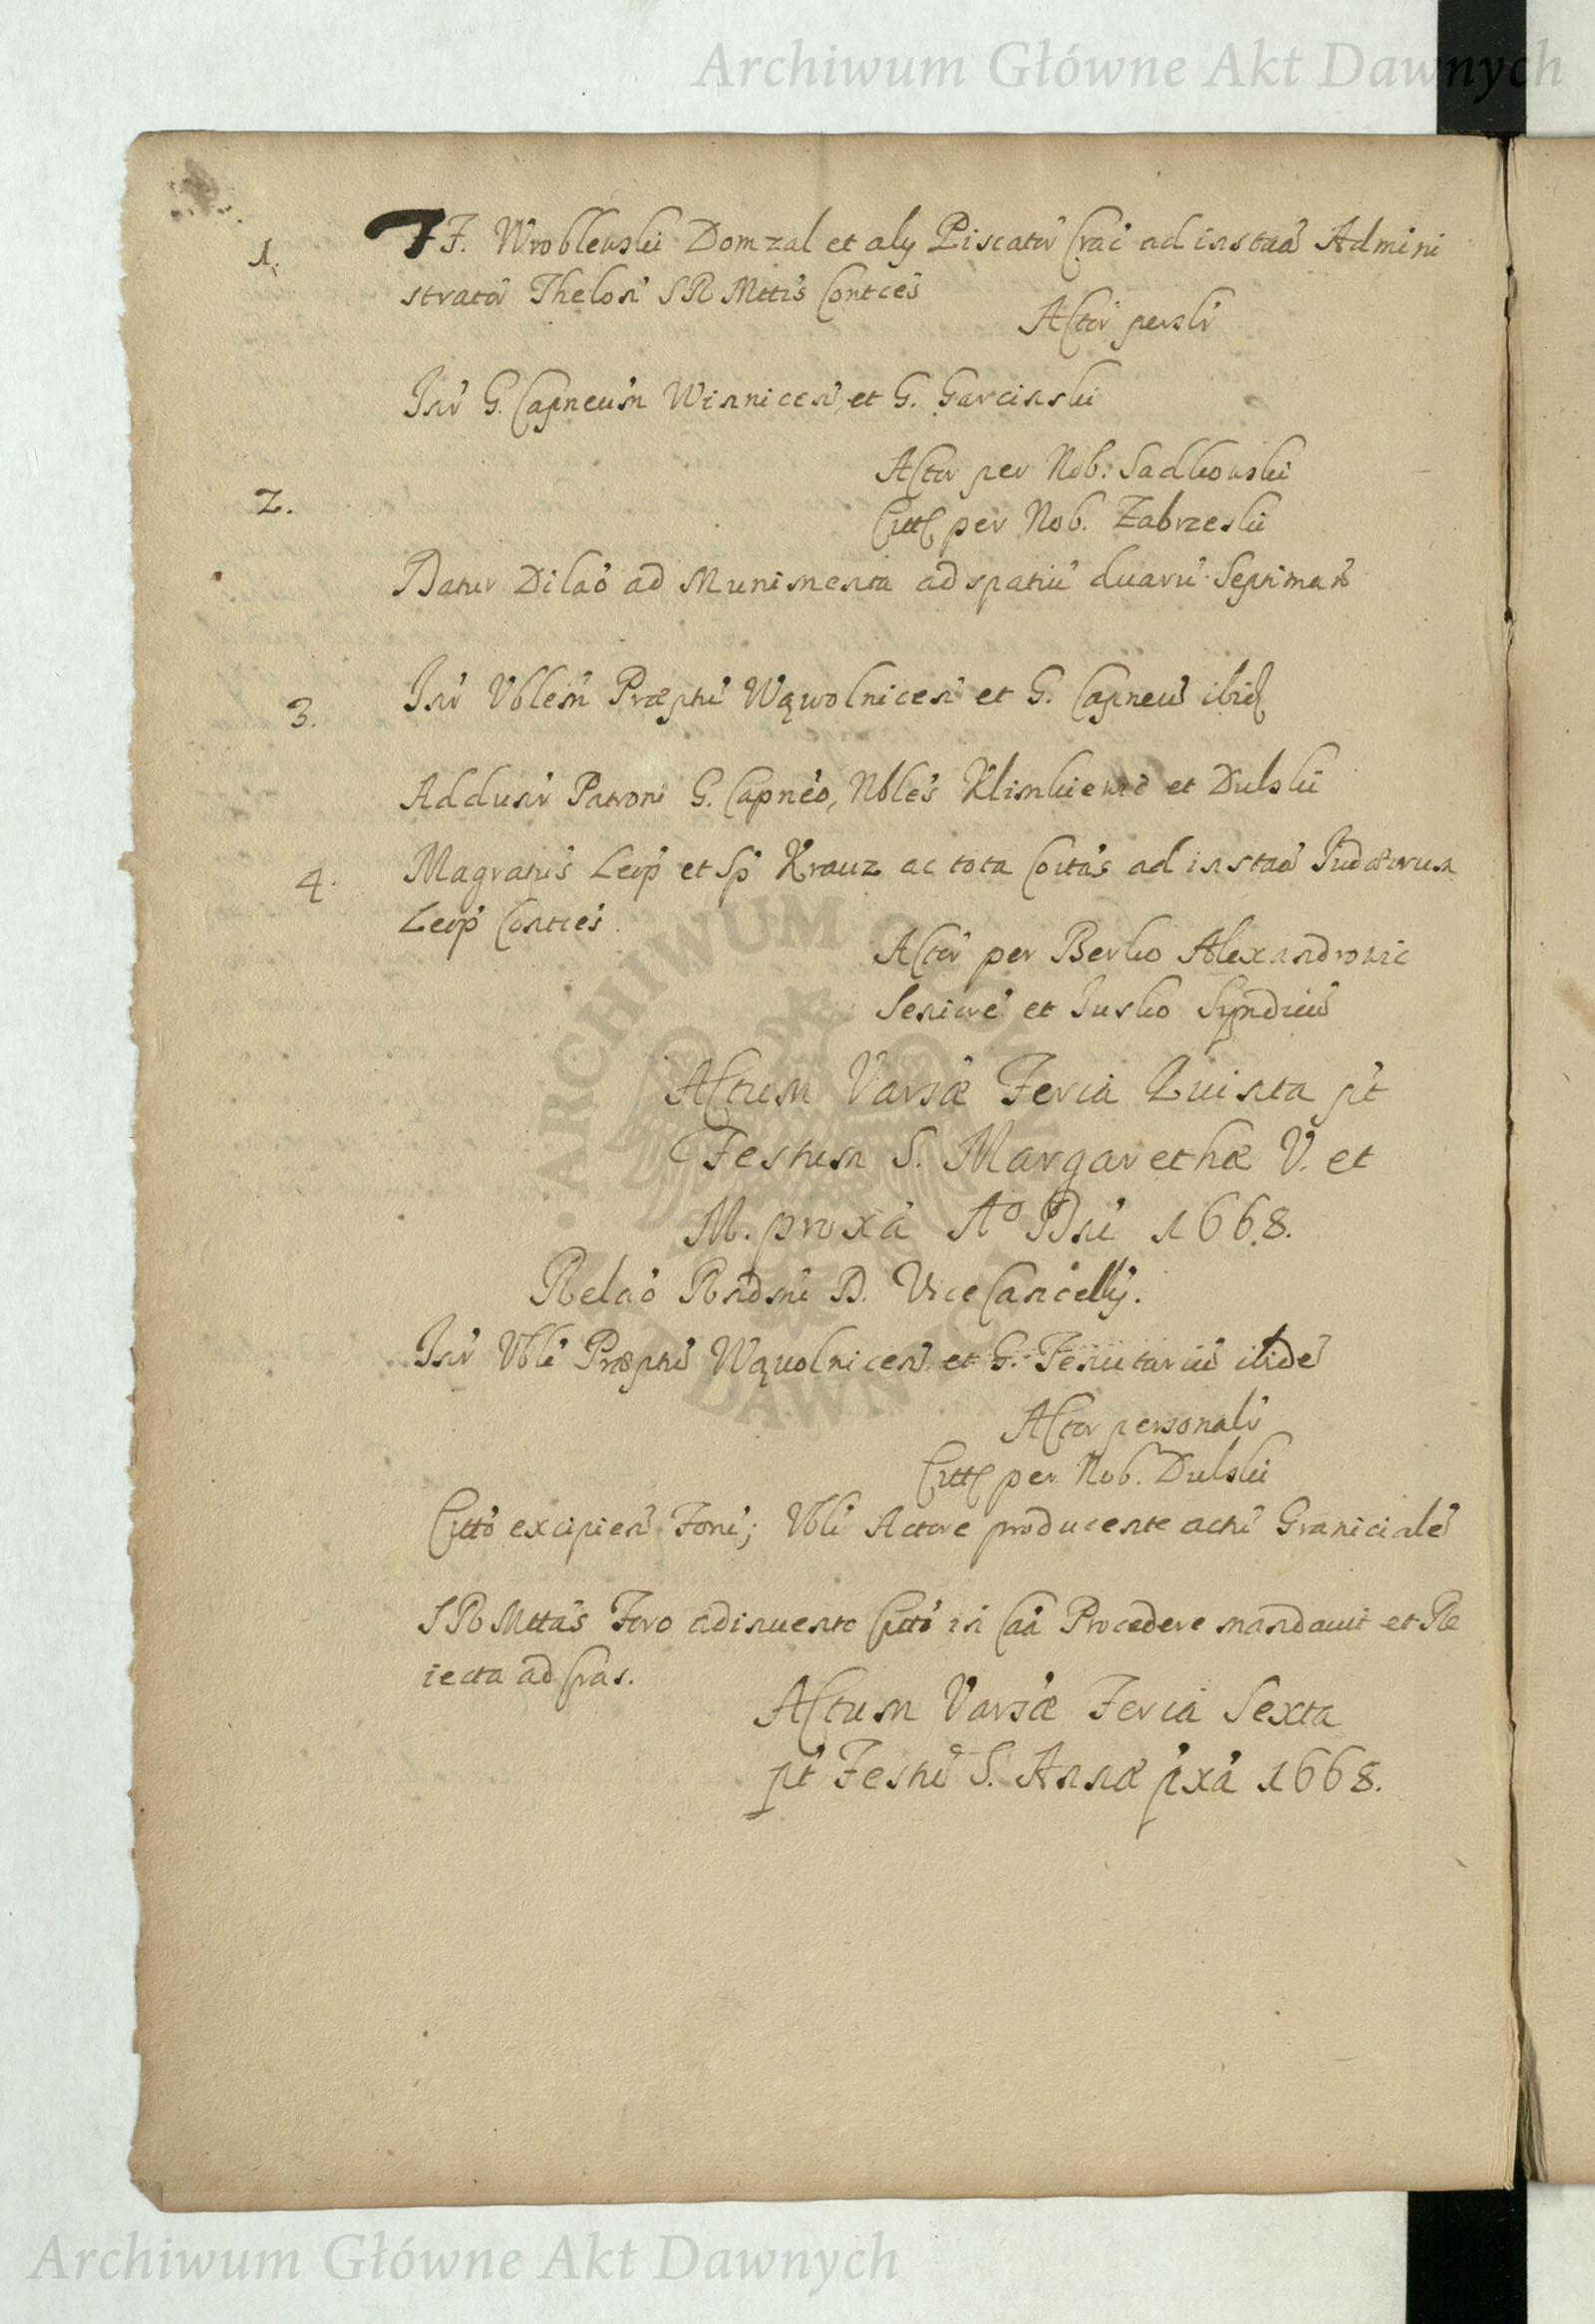 Archiwum Główne Akt Dawnych
1. FF. Wroblewski Domzal et alÿ Piscator Crac ad instaa Admini
strator Thelon S R Mttis Contces
Actor persolr
Inr G. Capneum Winnicen et G. Garcinski
Actor per Nob: Sadkowski
2.
Citt per Nob. Zabrzeski
Datur Dilao ad Munimenta ad spatiu duaru Septiman
3. Inr Vblem Præptu Wąwolnicen et G. Capneu ibid
Addunr Patroni G. Capneo, Nbles Klimkiewic et Dulski
4. Magratus Leop et Sp Krauz ac tota Coitas ad instaa Judæorum
Leop Contces.
Actor per Berko Alexandrowic
Seniore et Jusko Syndicu
ARCHIWUM
Actum Varsæ Feria Quinta pt
Festum S. Margarethæ V. et
M. proxa Ao Dni 1668.
Relao Rndmi D. ViceCancellÿ.
Inr Vble Præptu Wąwolnicen et G. Tenutariu ibide
DAWNYCH
Actor personalr
Citt per Nob. Dulski
Citto excipien Fori; Vbli Actore producente actu Graniciale
S R Mttas Foro adinvento Citto in Caa Procedere mandavit et Re
iecta ad cras.
Actum Varsæ Feria Sexta
pt Festu S. Annæ pxa 1668.
Archiwum Główne Akt Dawnych